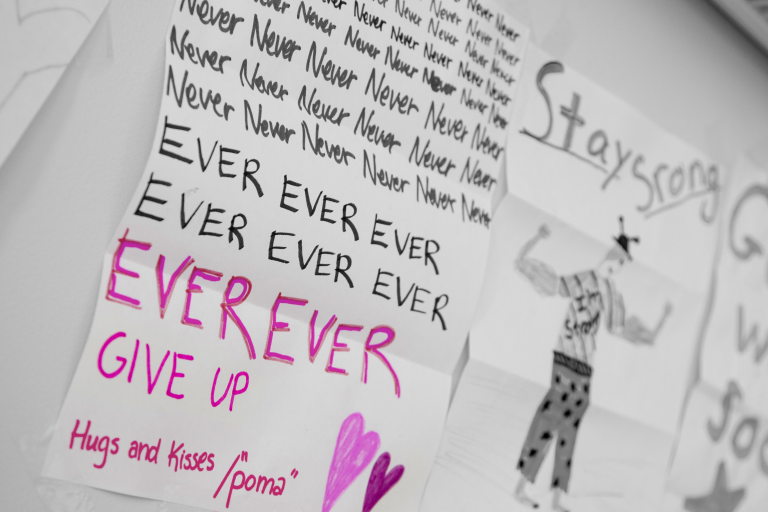 Never Never Never Never Never
Never Never Never Never Never
Never Never Never Never Never Never
Never Never Never Never Never Never
Never Never Never Never Never Never
Never Never Never Never Never Never
EVER EVER EVER
EVER EVER EVER
EVER EVER
GIVE UP
Hugs and Kisses /"poma"
Stay srong
I'm
strong